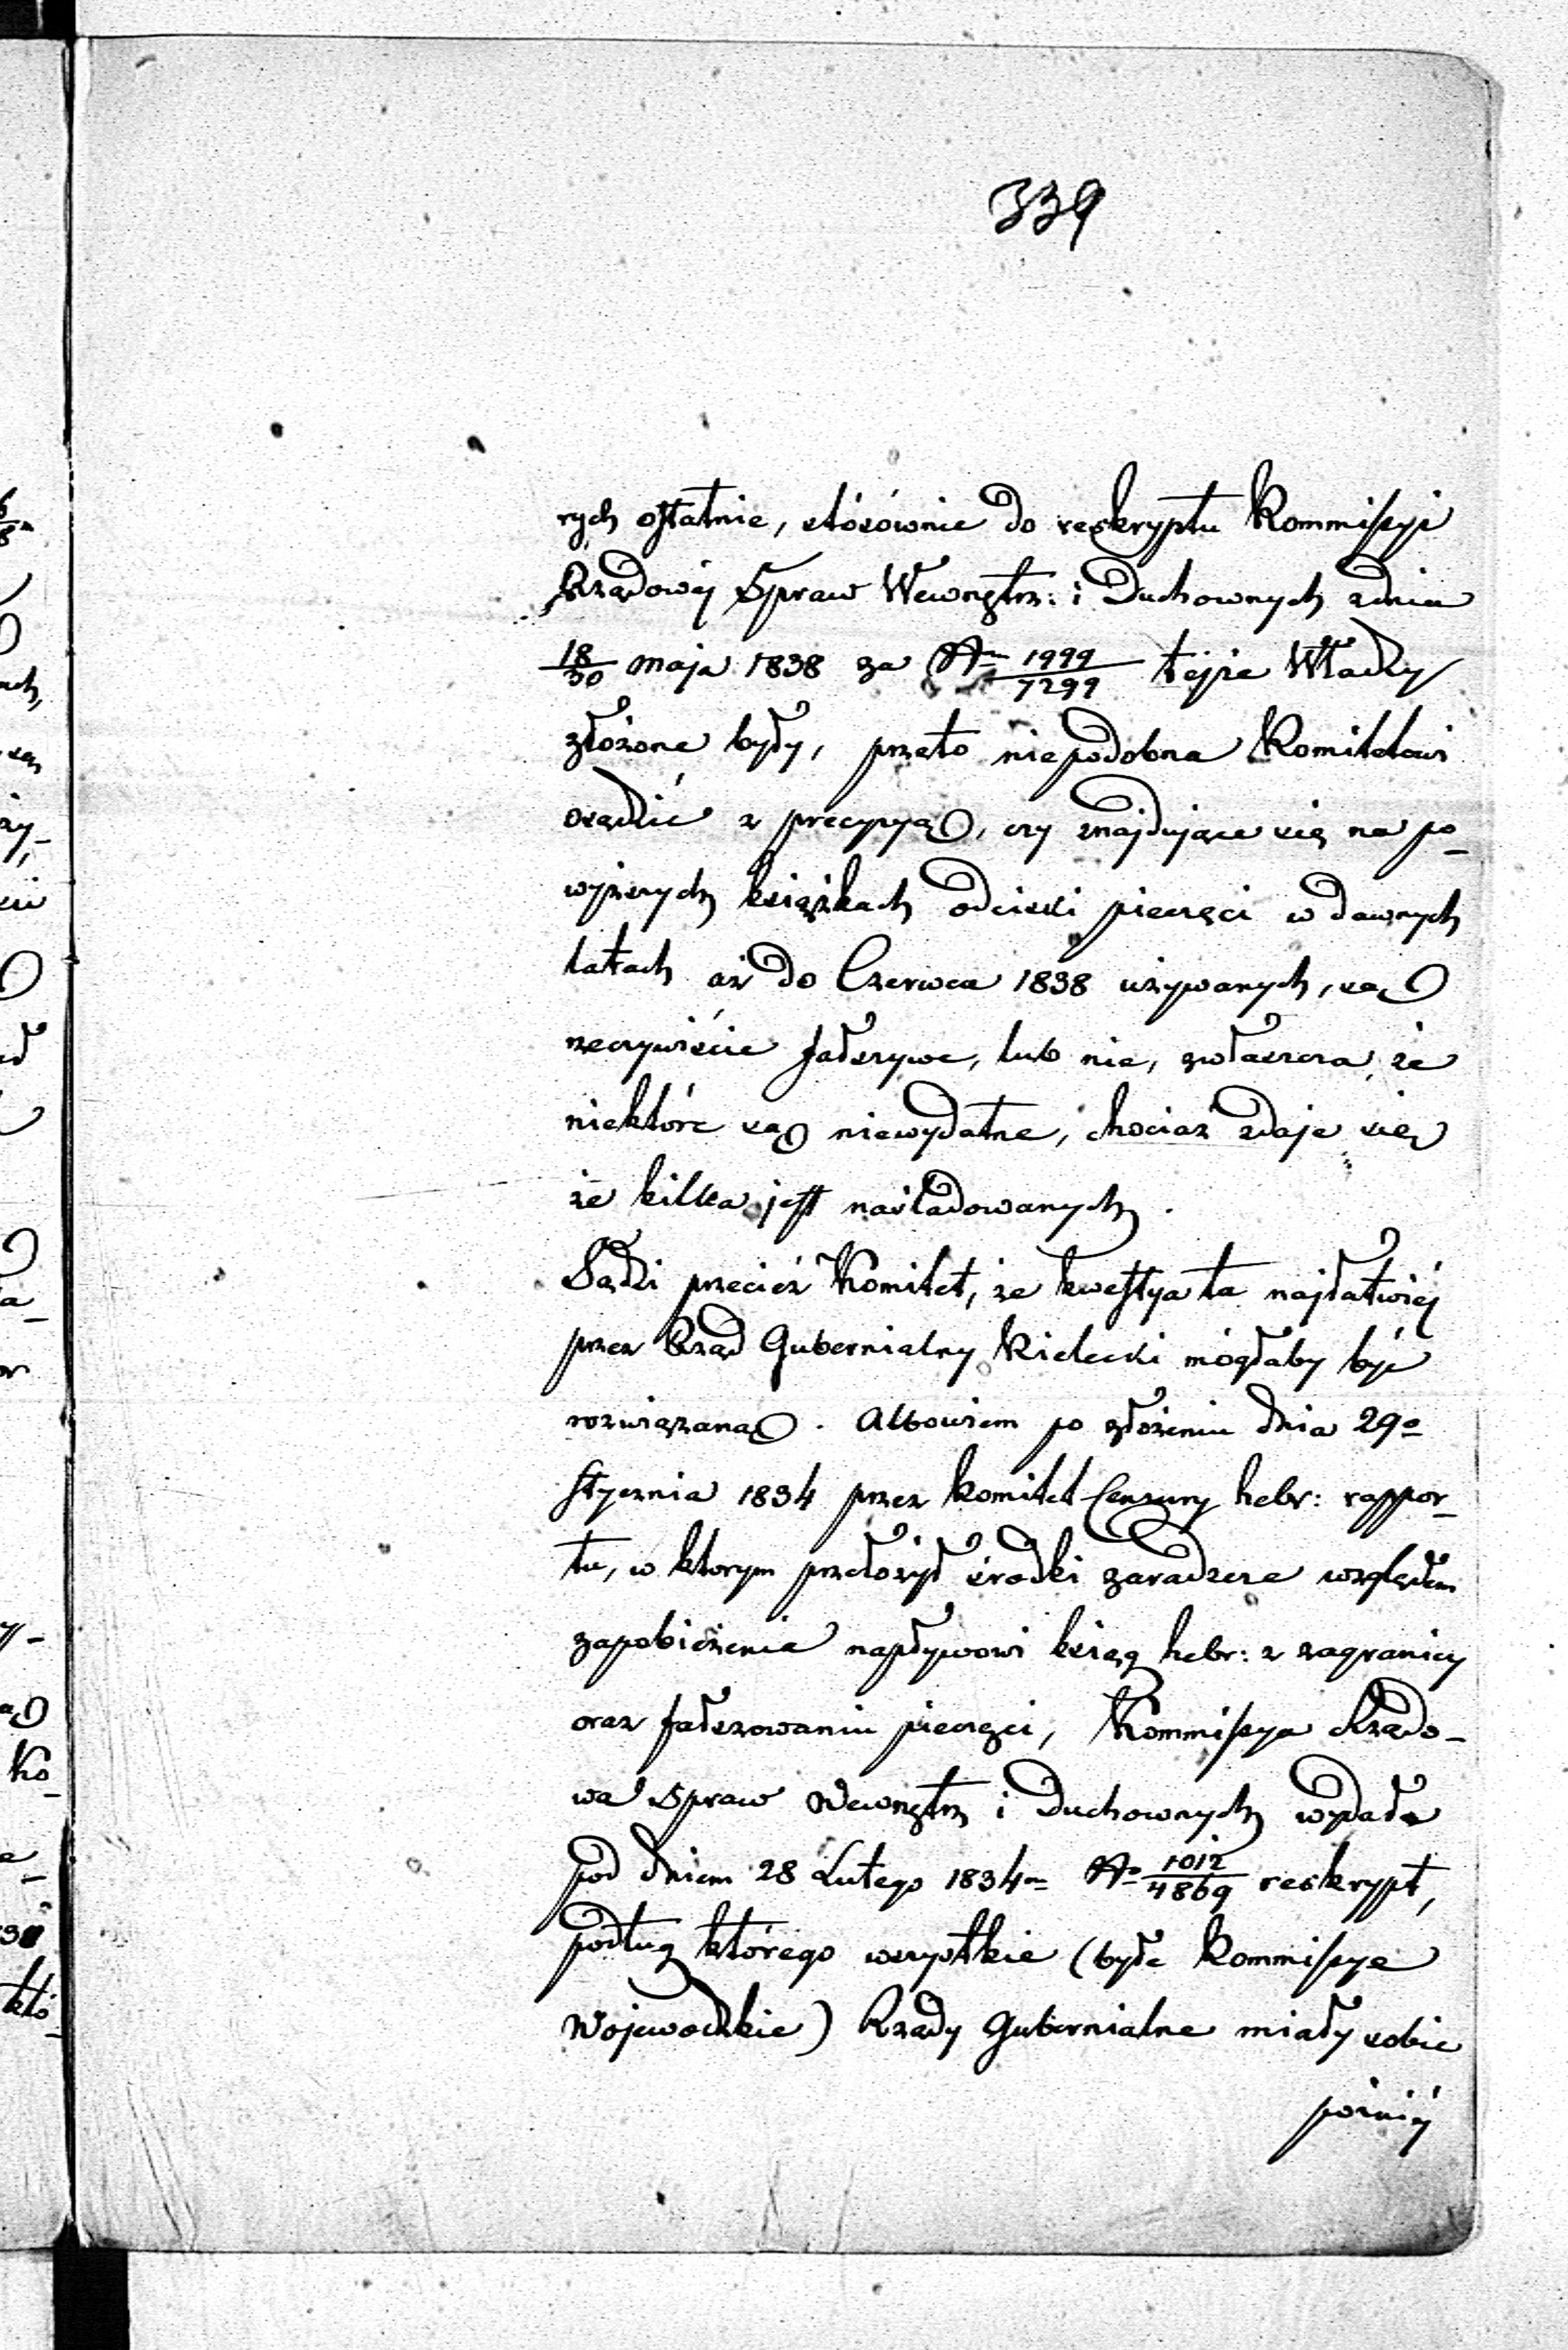 339
rych ostatnie, stósównie do reskryptu Kommissyi
Rządowéj Spraw Wewnętrz: i Duchownych zdnia
18/30 maja 1838 za No 1999/7299 tejże Władzy
złożone były, przeto niepodobna Komitetowi
osądzić z precyzyą, czy znajdujące się na po-
wyższych książkach odciski pieczęci w dawnych
latach aż do Czerwca 1838 używanych, są
rzeczywiście fałszywe, lub nie, zwłaszcza, że
niektóre są niewydatne, chociaż zdaje się
że kilka jest naśladowanych.
Sądzi przecież Komitet, że kwestya ta najłatwiéj
przez Rząd Gubernialny Kielecki mógłaby być
rozwiązaną. Albowiem po złożeniu dnia 29o
Stycznia 1834 przez Komitet Cenzury hebr: rappor-
tu, w ktorym przełożył środki zaradcze względem
zapobieżenia napływowi ksiąg hebr: z zagranicy
oraz fałszowaniu pieczęci, Kommissya Rządo-
wa Spraw Wewnętrz i Duchownych wydała
pod dniem 28 Lutego 1834m No 1012/4869 reskrypt,
podług którego wszystkie (byłe Kommissye
Wojewodzkie) Rządy Gubernialne miały sobie
pożniéj